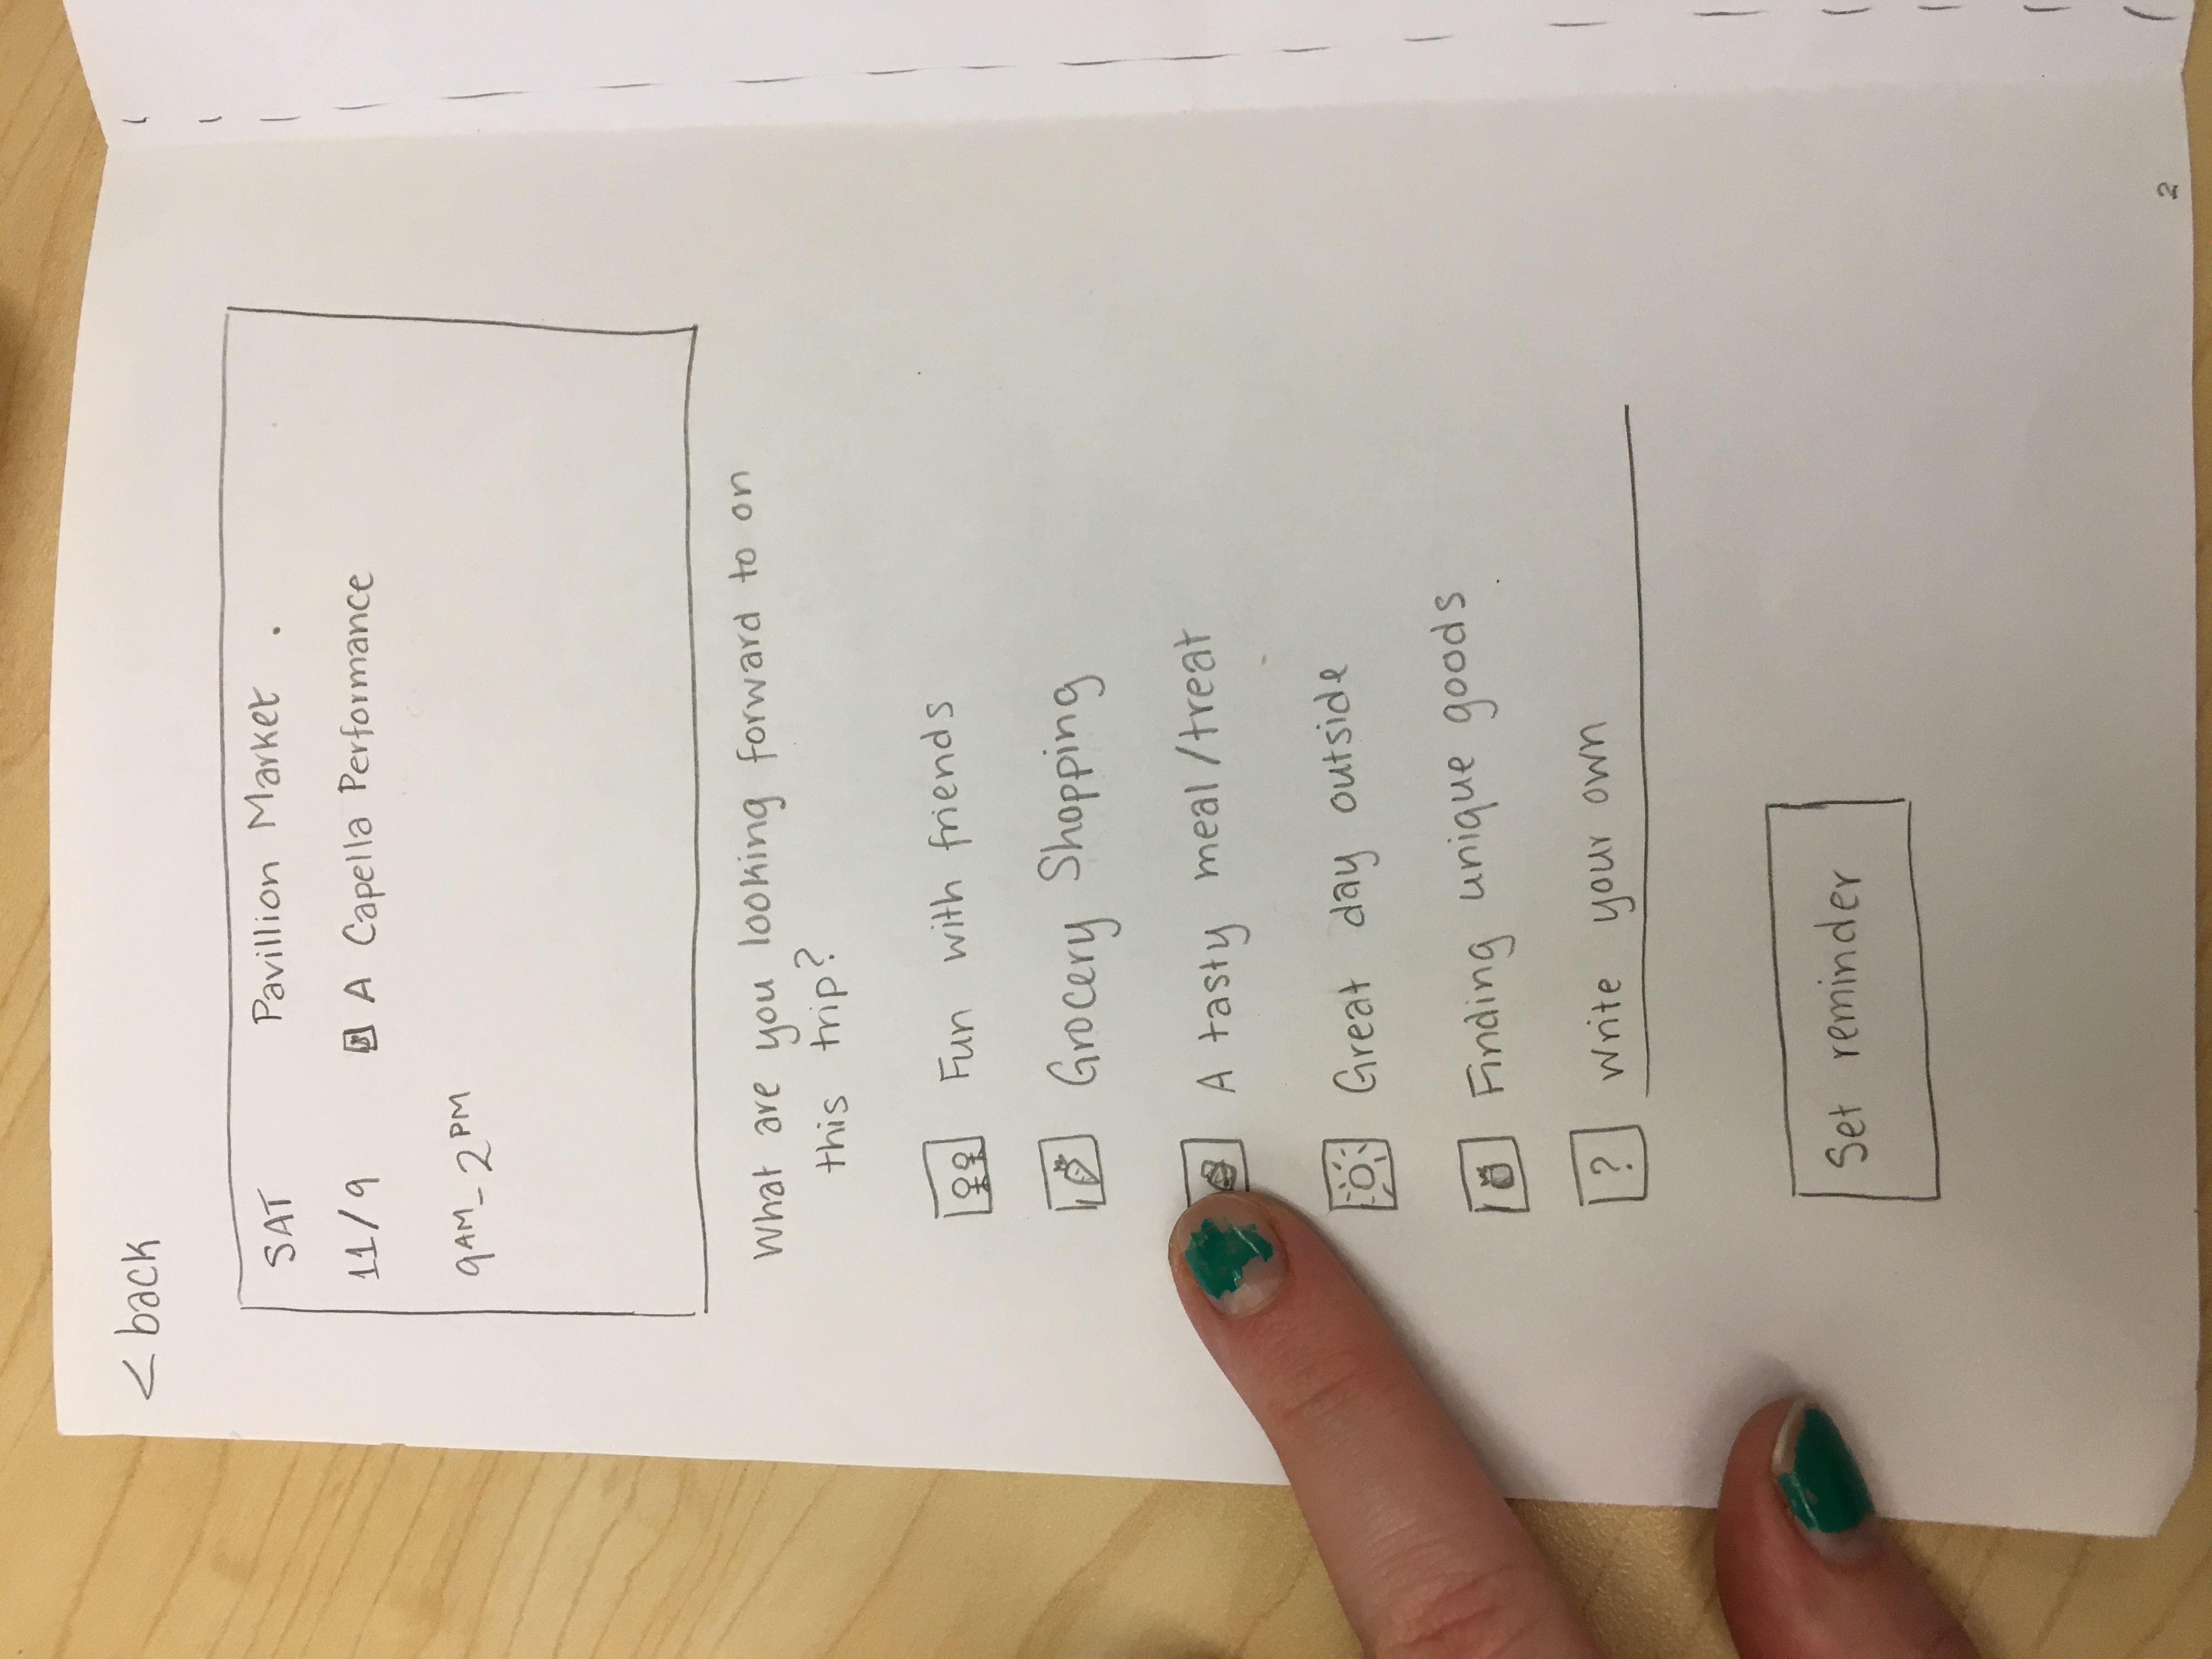 < back
SAT Pavillion Market .
11/9 A Capella Performance
9AM - 2PM
What are you looking forward to on
this trip?
Fun with friends
Grocery Shopping
A tasty meal/treat
Great day outside
Finding unique goods
? Write your own
Set reminder
2